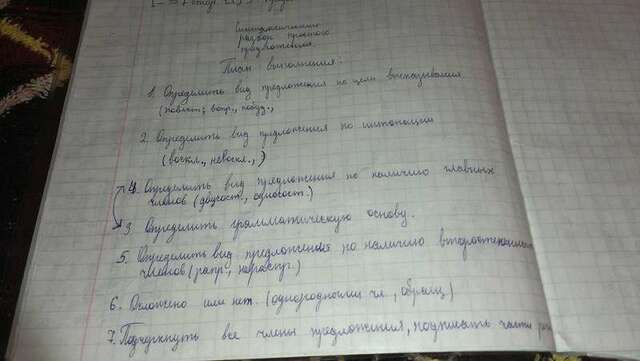 Синтаксический
разбор простого
предложения.
План выполнения:
1. Определить вид предложения по цели высказывания
(повест., вопр., побуд.,
2. Определить вид предложения по интонации
(воскл., невоскл.,)
4. Определить вид предложения по наличию главных
членов (двусост., односост.)
3 Определить грамматическую основу.
5. Определить вид предложения по наличию второстепенных
членов (распр., нераспр.)
6. Осложнено или нет. (однородности чл., обращ)
7. Подчеркнуть все члены предложения, подписать части